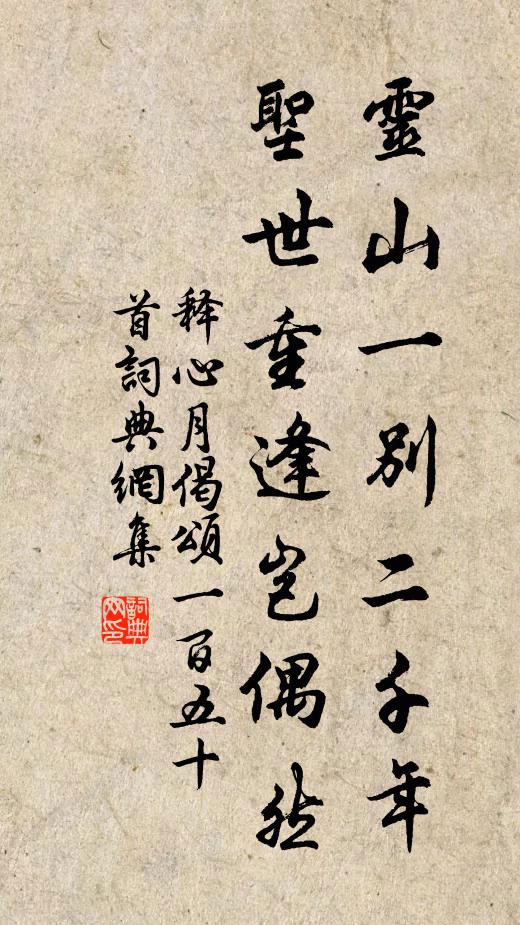 靈山一別二千年
聖世重逢豈偶然
释心月偈頌一百五十
首詞典網集
詞典
网印